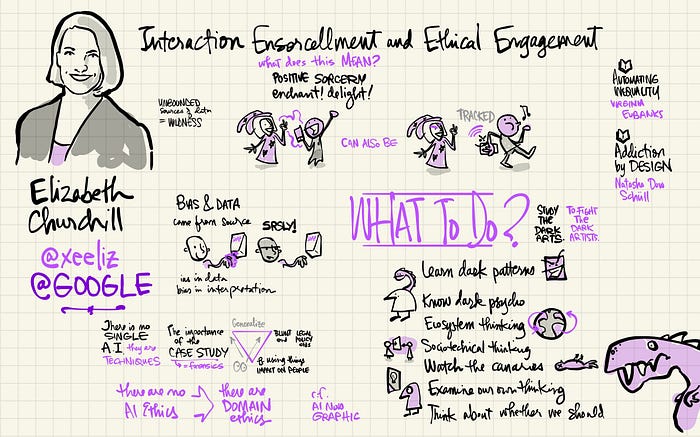 Interaction Ensorcellment and Ethical Engagement
what does this MEAN?
POSITIVE SORCERY
enchant! delight!
UNBOUNDED
= WILDNESS
CAN ALSO BE
TRACKED
AUTOMATING
INEQUALITY
VIRGINIA
EUBANKS
Addiction
by DESIGN
Natasha Dow
Schüll
Elizabeth
Churchill
@xeeliz
@GOOGLE
BIAS & DATA
came from source
SRSLY!
bias in interpretation
WHAT TO DO?
STUDY
THE
DARK
ARTS.
TO FIGHT
THE
DARK
ARTISTS.
Learn dark patterns
Know dark psycho
Ecosystem thinking
Sociotechical thinking
Watch the canaries
Examine our own thinking
Think about whether we should
There is no
SINGLE
A.I. they are
TECHNIQUES
The importance
of the
CASE STUDY
forensics
Generalize
BLUNT LEGAL
and POLICY
& using things
IMPACT ON PEOPLE
there are no
AI Ethics
there are
DOMAIN
ethics
r.f.
AI NOW
GRAPHIC